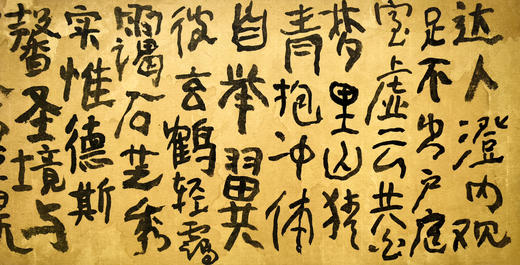 达人澄内观
足不出户庭
室虚云共白
梦里山犹
青抱冲体
自举翼
彼玄鹤轻霭
霭石芝秀
实惟德斯
馨圣境与